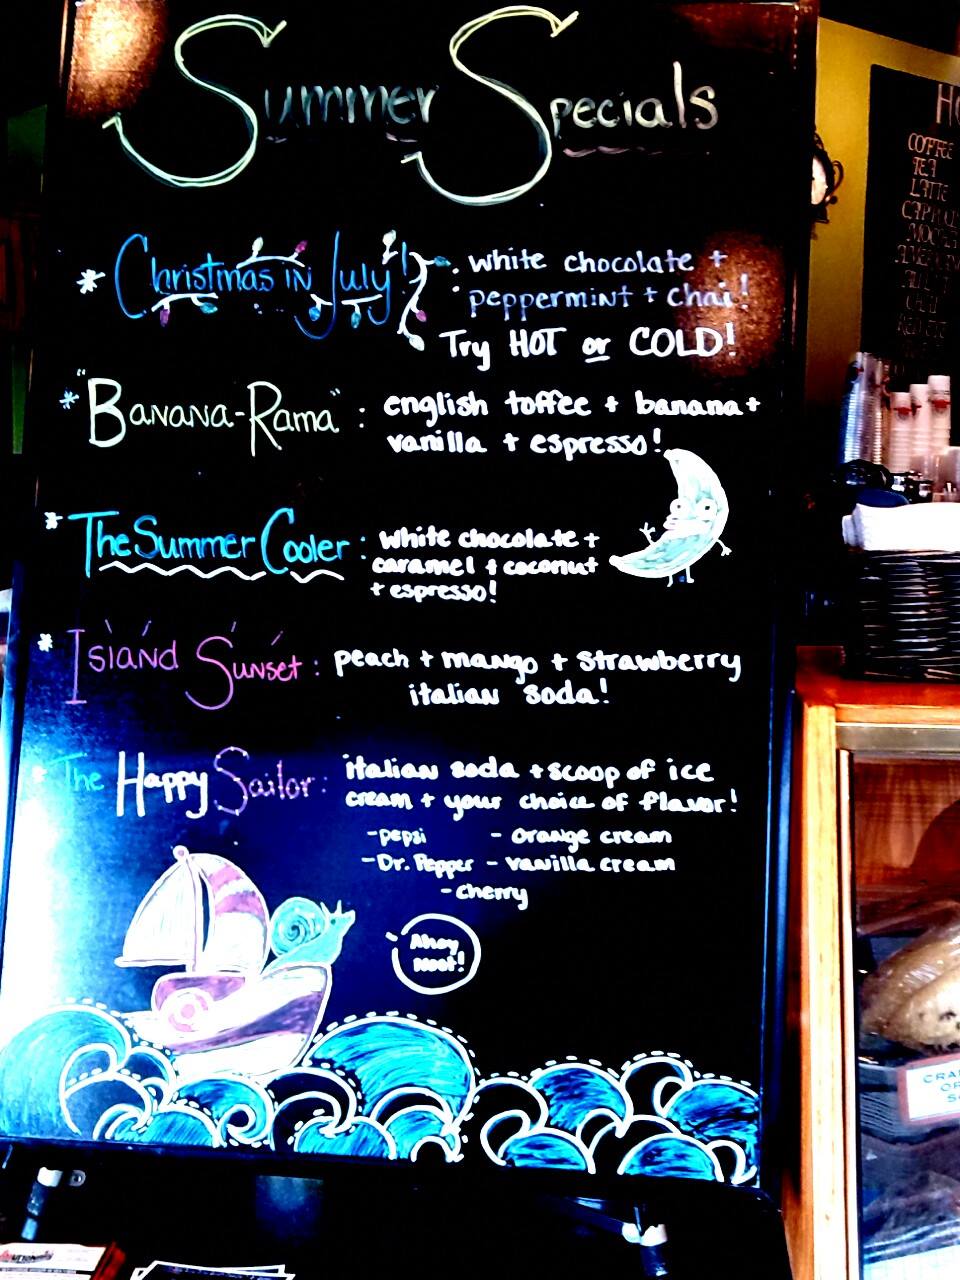 Summer Specials
* Christmas in July! : white chocolate +
peppermint + chai!
Try HOT or COLD!
* "Banana-Rama" : english toffee + banana +
vanilla + espresso!
* The Summer Cooler : white chocolate +
caramel + coconut
+ espresso!
* Island Sunset : peach + mango + strawberry
italian soda!
* The Happy Sailor : italian soda + scoop of ice
cream + your choice of flavor!
- pepsi - orange cream
- Dr. Pepper - vanilla cream
- cherry
Ahoy
COFFEE
TEA
LATTE